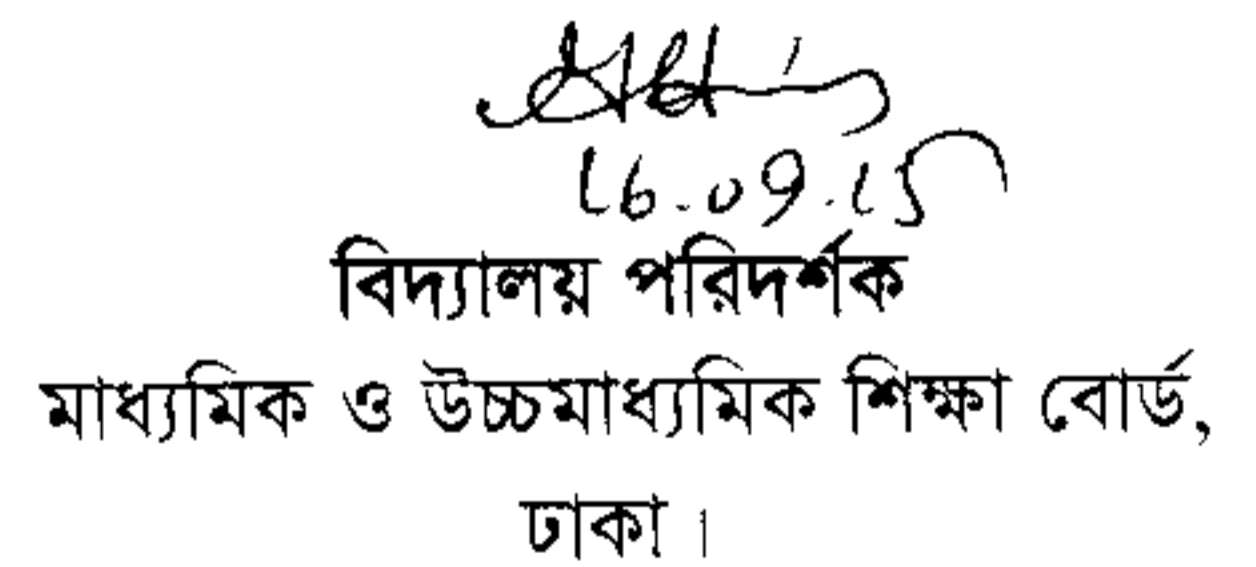 16.09.15
বিদ্যালয় পরিদর্শক
মাধ্যমিক ও উচ্চমাধ্যমিক শিক্ষা বোর্ড,
ঢাকা।